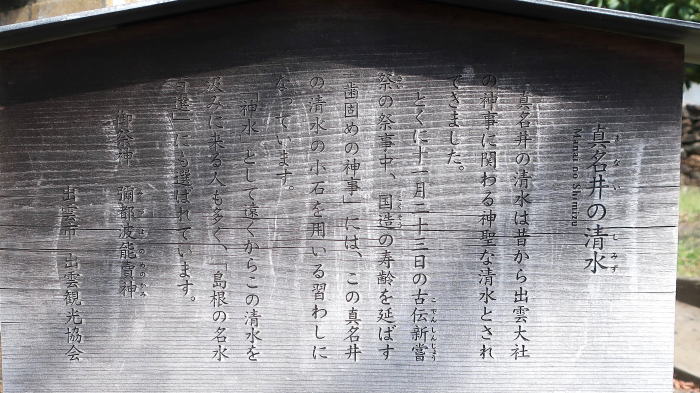 真名井の清水
まない しみず
Manai no Shimizu
真名井の清水は昔から出雲大社
の神事に関わる神聖な清水とされ
てきました。
とくに十一月二十三日の古伝新嘗
こでんしんじょう
祭の祭事中、国造の寿齢を延ばす
さい こくそう
「歯固めの神事」には、この真名井
の清水の小石を用いる習わしに
なっています。
「神水」として遠くからこの清水を
汲みに来る人も多く、「島根の名水
百選」にも選ばれています。
御祭神 彌都波能賣神
みづはのめのかみ
出雲市 出雲観光協会